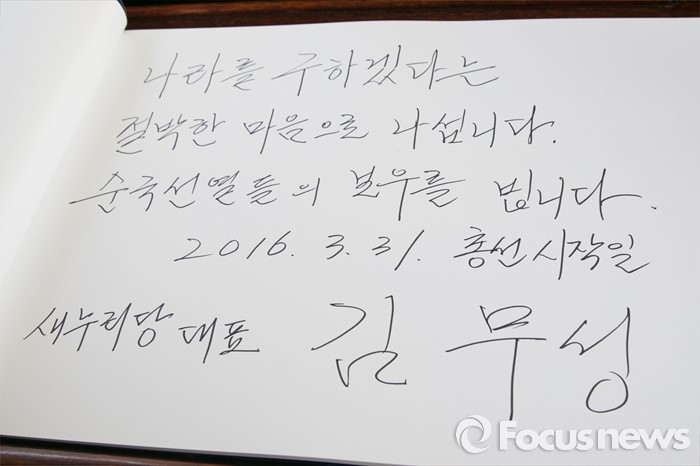 나라를 구하겠다는
절박한 마음으로 나섭니다.
순국선열들의 보우를 빕니다.
2016. 3. 31. 총선 시작일
새누리당 대표 김무성
Focusnews